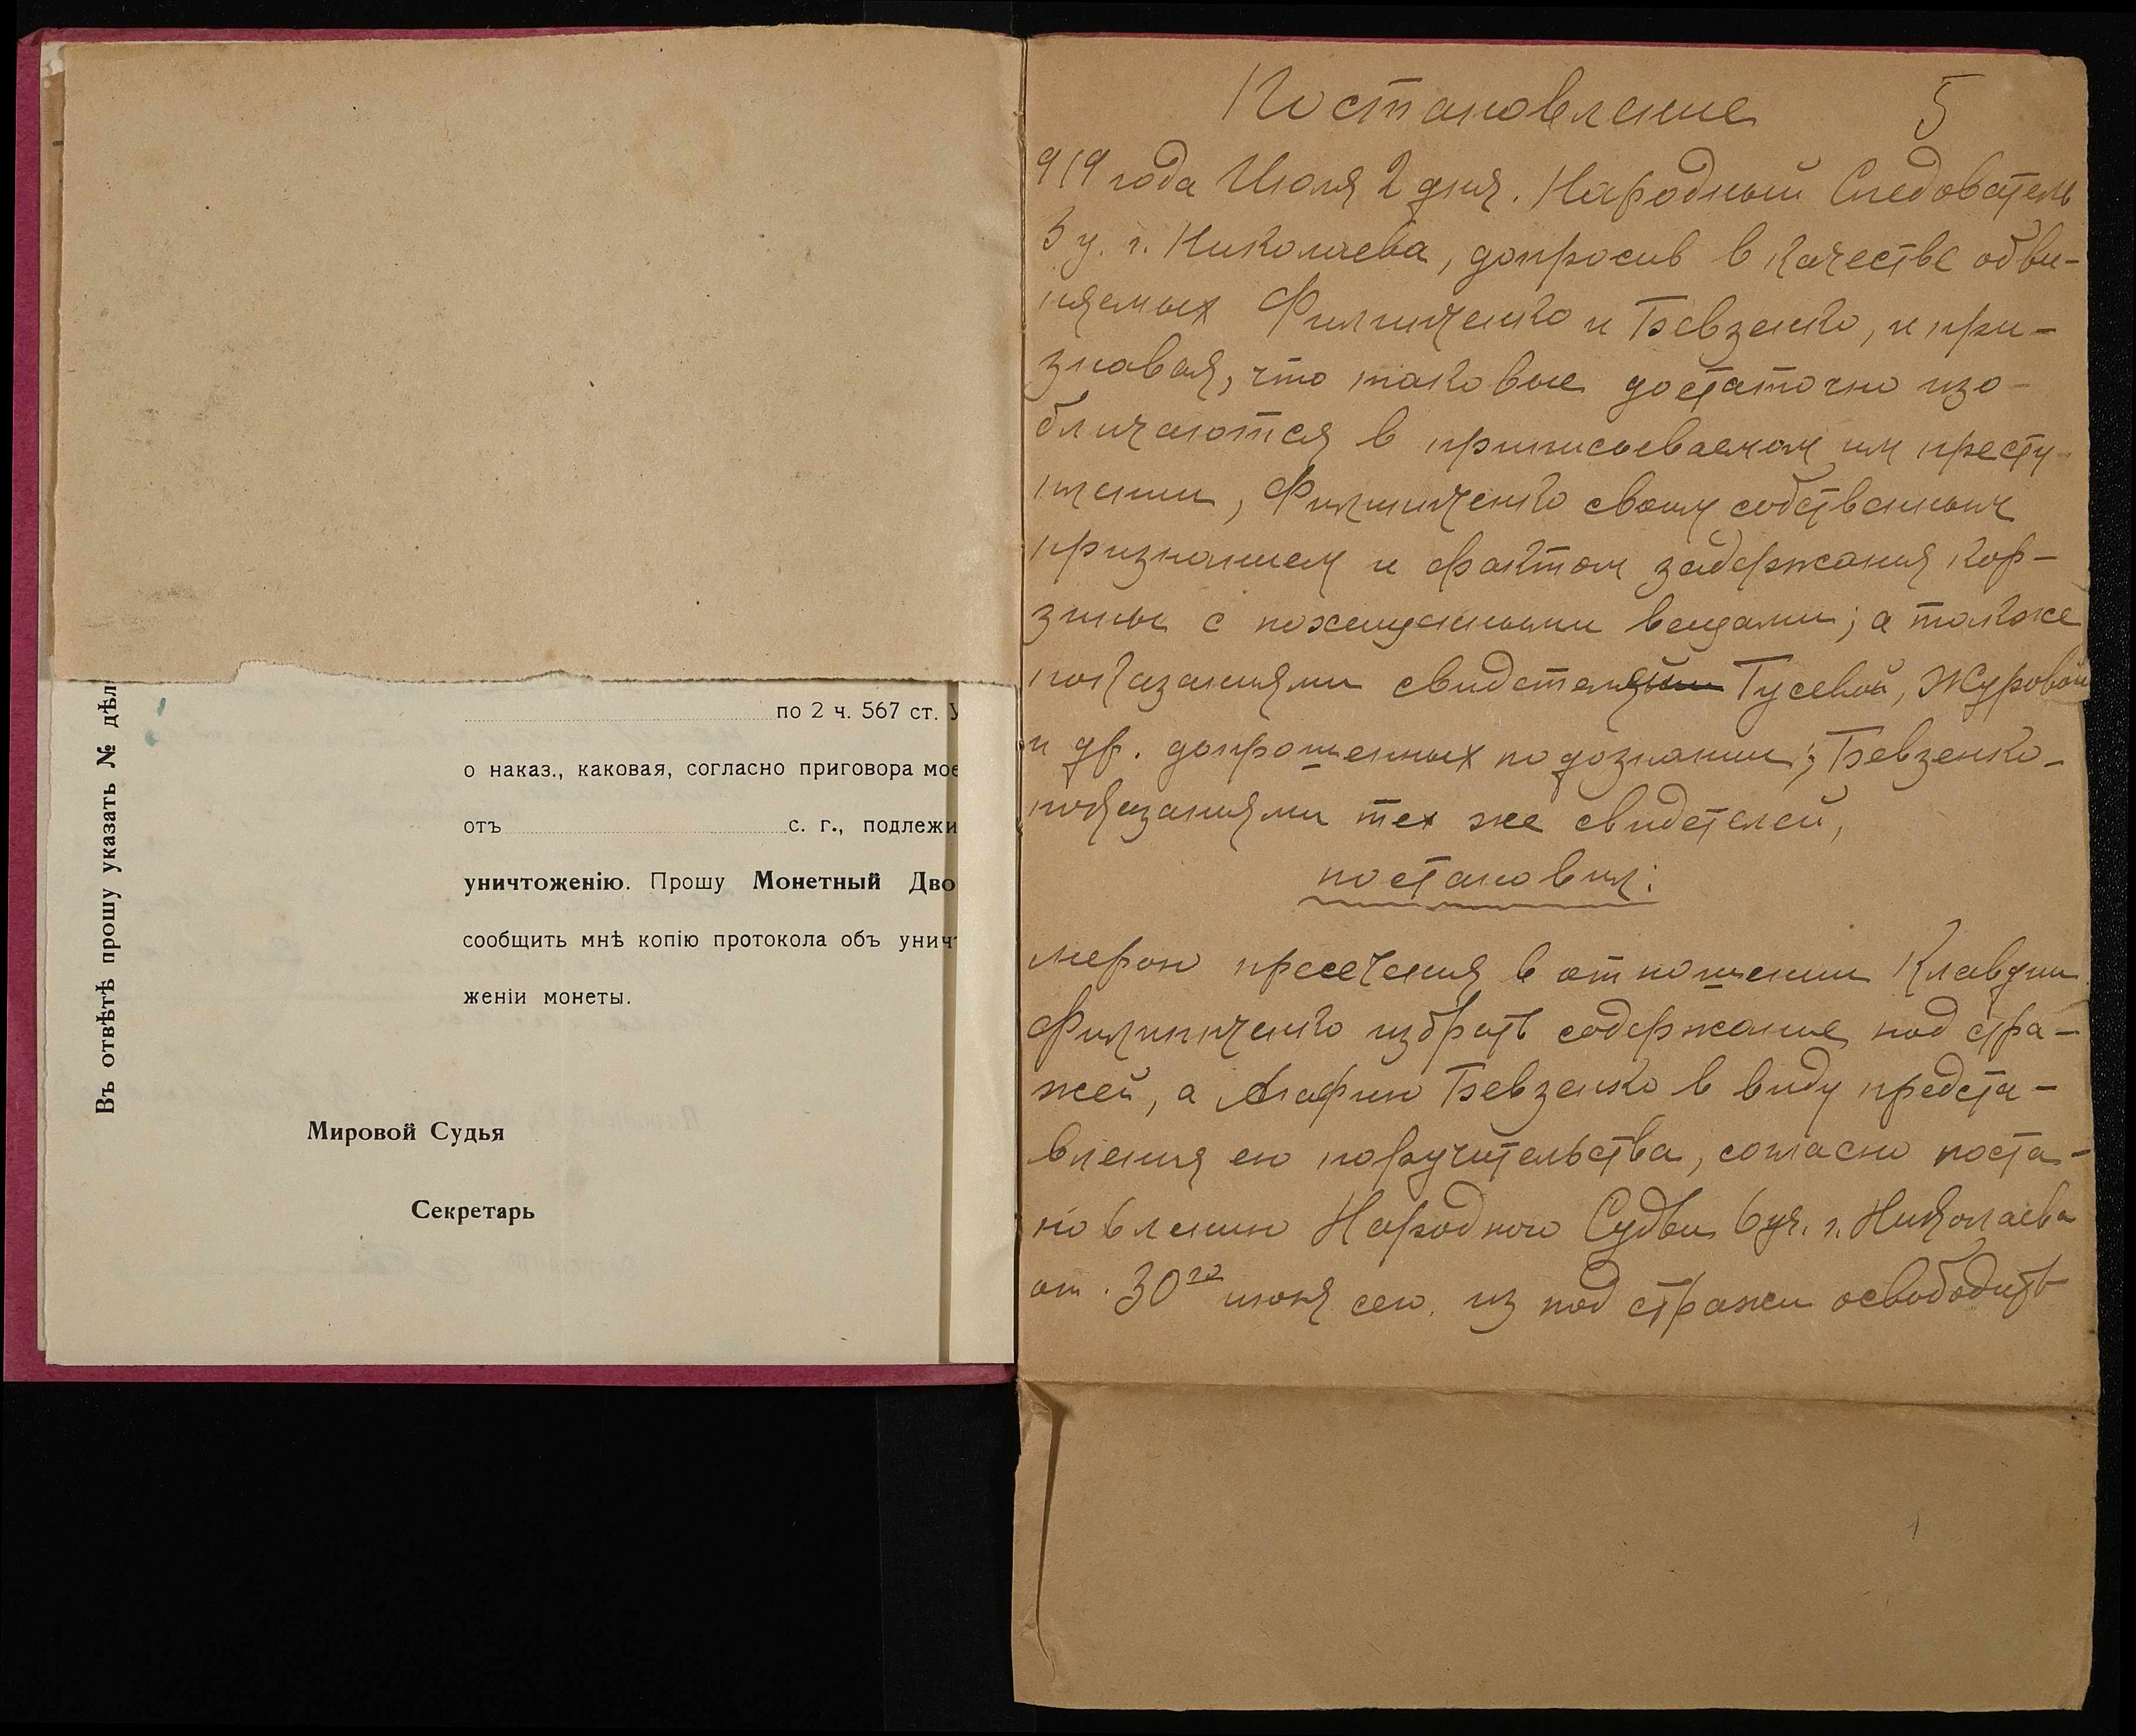 Въ отвѣтѣ прошу указать № дѣл
по 2 ч. 567 ст. У
о наказ., каковая, согласно приговора мое
отъ с. г., подлежи
уничтоженію. Прошу Монетный Дво
сообщить мнѣ копію протокола объ унич
женіи монеты.
Мировой Судья
Секретарь
Постановление 5
919 года Июля 2 дня. Народный Следователь
5 у. г. Николаева, допросив в качестве обви-
няемых Филипченко и Бевзенко, и при-
знавая, что таковые достаточно изо-
бличаются в приписываемом им престу-
плении, Филипченко своим собственным
признанием и фактом задержания кор-
зины с похищенными вещами; а также
показаниями свидетелей Гусевой, Журовой
и др. допрошенных по дознании; Бевзенко-
показаниями тех же свидетелей,
постановил:
мерою пресечения в отношении Клавдии
Филипченко избрать содержание под стра-
жей, а Бевзенко в виду предста-
вления ею поручительства, согласно поста-
новлению Народного Судьи 6 уч. г. Николаева
от 30го июня сего. из под стражи освободить